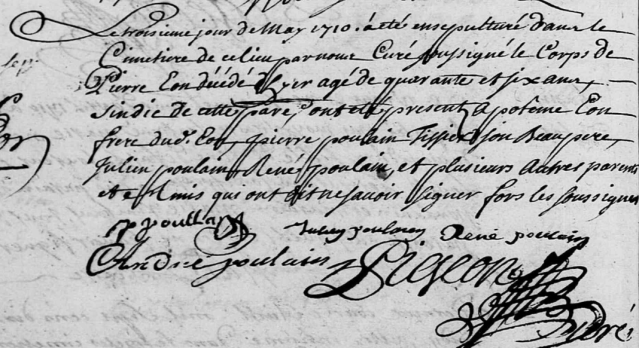 Le troisieme jour de May 1710. a été ensepulturé dans le
Cimetiere de ce lieu par nous Curé soussigné le Corps de
Pierre Eon décédé d'hyer agé de quarante et six ans,
sindic de cette parr ont été presents Apotême Eon
frere dud. Eon, pierre poulain Tissier son Beaupere,
Julien poulain, René poulain, et plusieurs autres parents
et Amis qui ont dit ne savoir signer fors les soussignes
p poullain Julien poulain René poulain
André poulain Pigeon
Curé